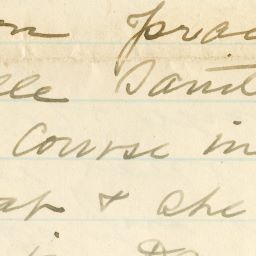 on prac
lle Sand
Course in
ap & she